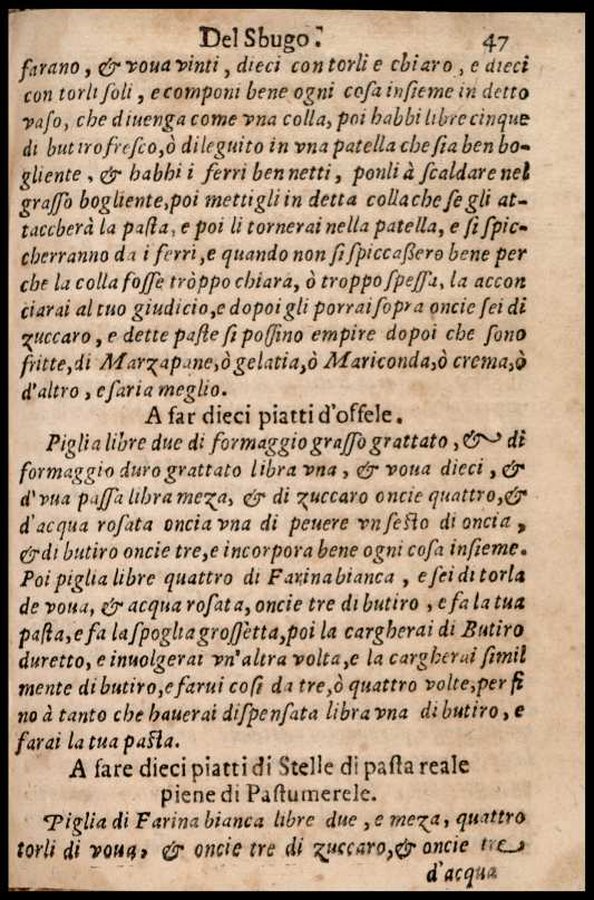 Del Sbugo. 47
farano, & voua vinti, dieci con torli e chiaro, e dieci
con torli soli, e componi bene ogni cosa insieme in detto
vaso, che diuenga come vna colla, poi habbi libre cinque
di butiro fresco, ò dileguito in vna patella che sia ben bo-
gliente, & habbi i ferri ben netti, ponli à scaldare nel
grasso bogliente, poi mettigli in detta colla che se gli at-
taccherà la pasta, e poi li tornerai nella patella, e si spic-
cherranno da i ferri, e quando non si spiccaßero bene per
che la colla fosse tròppo chiara, ò troppo spessa, la accon
ciarai al tuo giudicio, e dopoi gli porrai sopra oncie sei di
zuccaro, e dette paste si possino empire dopoi che sono
fritte, di Marzapane, ò gelatia, ò Mariconda, ò crema, ò
d'altro, e saria meglio.
A far dieci piatti d'offele.
Piglia libre due di formaggio grasso grattato, & di
formaggio duro grattato libra vna, & voua dieci, &
d'vua passa libra meza, & di zuccaro oncie quattro, &
d'acqua rosata oncia vna di peuere vn sesto di oncia,
& di butiro oncie tre, e incorpora bene ogni cosa insieme.
Poi piglia libre quattro di Farina bianca, e sei di torla
de voua, & acqua rosata, oncie tre di butiro, e fa la tua
pasta, e fa la spoglia grossetta, poi la cargherai di Butiro
duretto, e inuolgerai vn'altra volta, e la cargherai simil
mente di butiro, e farui cosi da tre, ò quattro volte, per fi
no à tanto che hauerai dispensata libra vna di butiro, e
farai la tua pasta.
A fare dieci piatti di Stelle di pasta reale
piene di Pastumerele.
Piglia di Farina bianca libre due, e meza, quattro
torli di voua, & oncie tre di zuccaro, & oncie tre
d'acqua